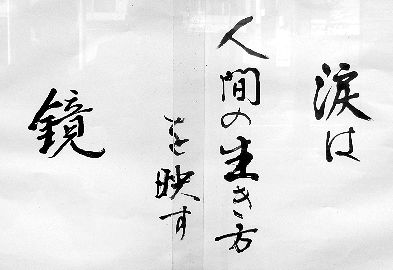 涙は
人間の生き方
を映す
鏡